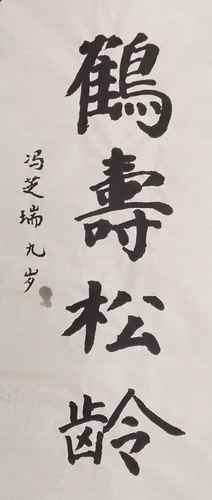 鶴壽松龄
冯芝瑞九岁